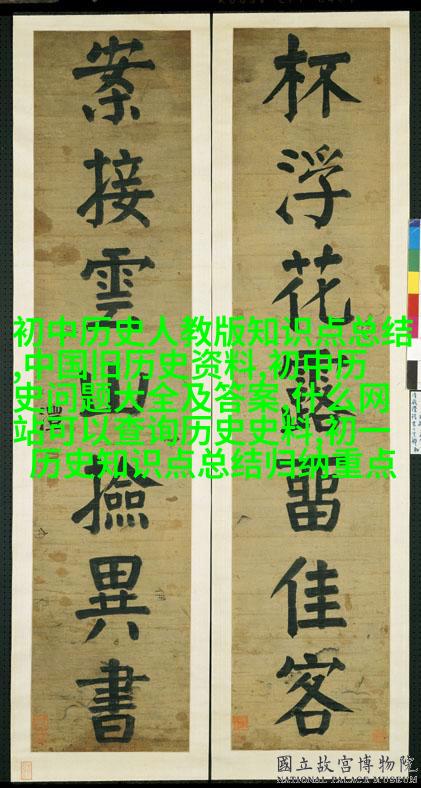 杯浮花露留佳客
案接雲山撿異書
初中历史人教版知识点总结
,中国旧历史资料,初中历
史问题大全及答案,什么网
站可以查询历史史料,初一
历史知识点总结归纳重点
國立故宮博物院
NATIONAL PALACE MUSEUM